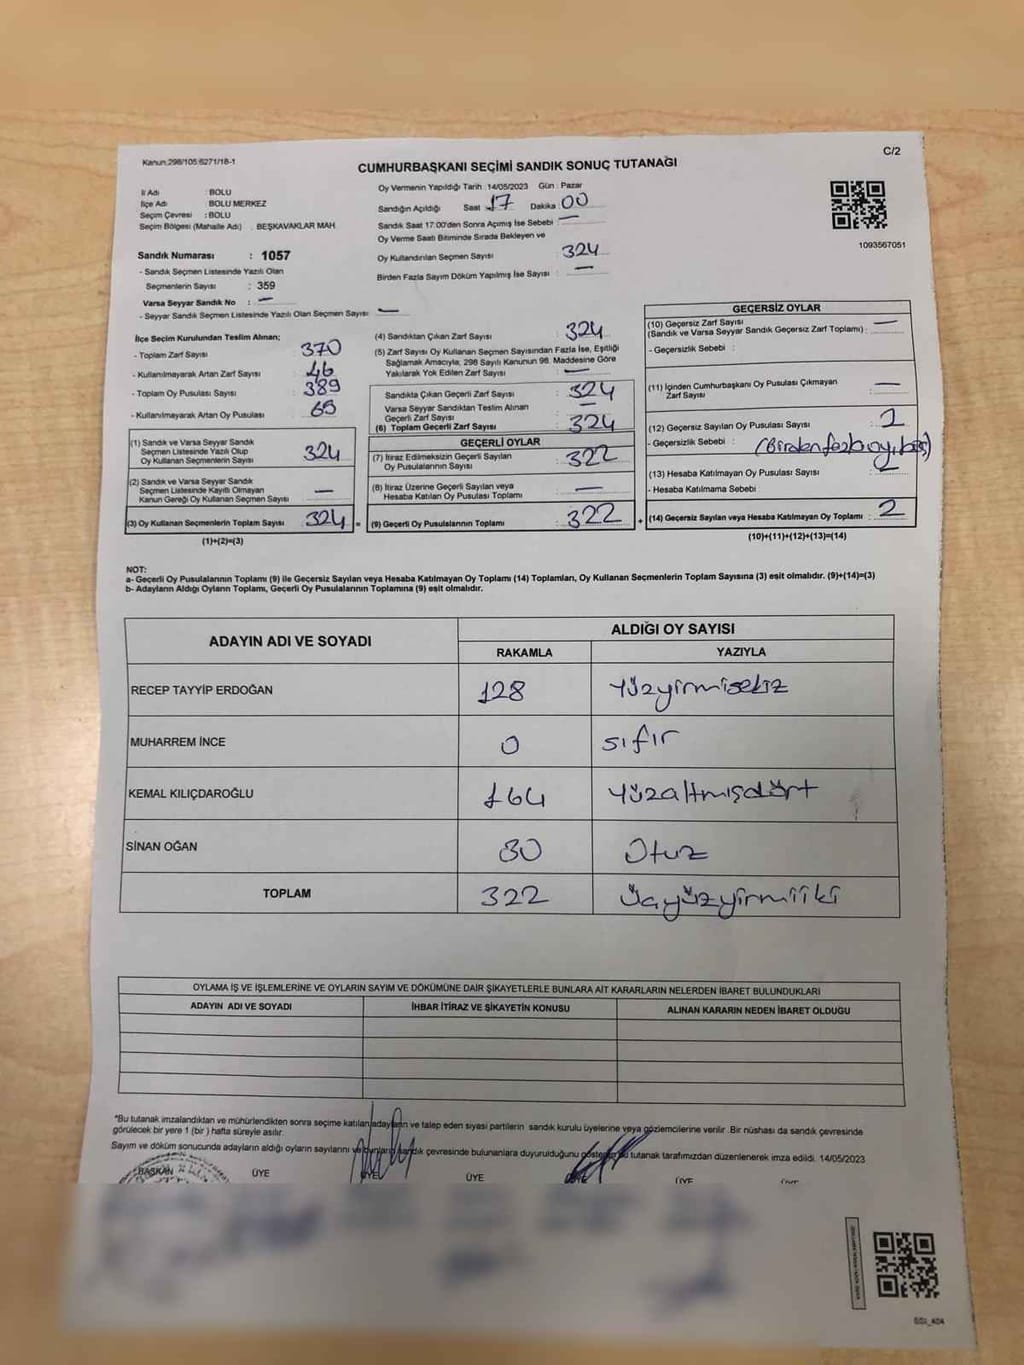 Kanun:298/105;6271/18-1
C/2
CUMHURBAŞKANI SEÇİMİ SANDIK SONUÇ TUTANAĞI
İl Adı : BOLU
İlçe Adı : BOLU MERKEZ
Seçim Çevresi : BOLU
Seçim Bölgesi (Mahalle Adı) : BEŞKAVAKLAR MAH.
Oy Vermenin Yapıldığı Tarih :14/05/2023 Gün : Pazar
Sandığın Açıldığı Saat 17 Dakika 00
Sandık Saat 17:00'den Sonra Açımış İse Sebebi : —
Oy Verme Saati Bitiminde Sırada Bekleyen ve
Oy Kullandırılan Seçmen Sayısı : 324
Birden Fazla Sayım Döküm Yapılmış İse Sayısı : —
1093567051
Sandık Numarası : 1057
- Sandık Seçmen Listesinde Yazılı Olan
Seçmenlerin Sayısı : 359
Varsa Seyyar Sandık No : —
- Seyyar Sandık Seçmen Listesinde Yazılı Olan Seçmen Sayısı: —
İlçe Seçim Kurulundan Teslim Alınan;
- Toplam Zarf Sayısı : 370
- Kullanılmayarak Artan Zarf Sayısı : 46
- Toplam Oy Pusulası Sayısı : 389
- Kullanılmayarak Artan Oy Pusulası : 65
(1) Sandık ve Varsa Seyyar Sandık
Seçmen Listesinde Yazılı Olup
Oy Kullanan Seçmenlerin Sayısı : 324
(2) Sandık ve Varsa Seyyar Sandık
Seçmen Listesinde Kayıtlı Olmayan
Kanun Gereği Oy Kullanan Seçmen Sayısı : —
(3) Oy Kullanan Seçmenlerin Toplam Sayısı : 324 =
(1)+(2)=(3)
(4) Sandıktan Çıkan Zarf Sayısı : 324
(5) Zarf Sayısı Oy Kullanan Seçmen Sayısından Fazla İse, Eşitliği
Sağlamak Amacıyla; 298 Sayılı Kanunun 98. Maddesine Göre
Yakılarak Yok Edilen Zarf Sayısı : —
Sandıkta Çıkan Geçerli Zarf Sayısı : 324
Varsa Seyyar Sandıktan Teslim Alınan
Geçerli Zarf Sayısı : —
(6) Toplam Geçerli Zarf Sayısı : 324
GEÇERLİ OYLAR
(7) İtiraz Edilmeksizin Geçerli Sayılan
Oy Pusulalarının Sayısı : 322
(8) İtiraz Üzerine Geçerli Sayılan veya
Hesaba Katılan Oy Pusulası Toplamı : —
(9) Geçerli Oy Pusulalarının Toplamı : 322 +
GEÇERSİZ OYLAR
(10) Geçersiz Zarf Sayısı —
(Sandık ve Varsa Seyyar Sandık Geçersiz Zarf Toplamı) :
- Geçersizlik Sebebi :
(11) İçinden Cumhurbaşkanı Oy Pusulası Çıkmayan
Zarf Sayısı : —
(12) Geçersiz Sayılan Oy Pusulası Sayısı : 2
- Geçersizlik Sebebi : (Birden fazla oy
(13) Hesaba Katılmayan Oy Pusulası Sayısı :
- Hesaba Katılmama Sebebi :
(14) Geçersiz Sayılan veya Hesaba Katılmayan Oy Toplamı : 2
(10)+(11)+(12)+(13)=(14)
NOT:
a- Geçerli Oy Pusulalarının Toplamı (9) ile Geçersiz Sayılan veya Hesaba Katılmayan Oy Toplamı (14) Toplamları, Oy Kullanan Seçmenlerin Toplam Sayısına (3) eşit olmalıdır. (9)+(14)=(3)
b- Adayların Aldığı Oyların Toplamı, Geçerli Oy Pusulalarının Toplamına (9) eşit olmalıdır.
ADAYIN ADI VE SOYADI ALDIĞI OY SAYISI
RAKAMLA YAZIYLA
RECEP TAYYİP ERDOĞAN 128 Yüzyirmisekiz
MUHARREM İNCE 0 sıfır
KEMAL KILIÇDAROĞLU 164 Yüzaltmışdört
SİNAN OĞAN 30 Otuz
TOPLAM 322 Üçyüzyirmiiki
OYLAMA İŞ VE İŞLEMLERİNE VE OYLARIN SAYIM VE DÖKÜMÜNE DAİR ŞİKAYETLERLE BUNLARA AİT KARARLARIN NELERDEN İBARET BULUNDUKLARI
ADAYIN ADI VE SOYADI İHBAR İTİRAZ VE ŞİKAYETİN KONUSU ALINAN KARARIN NEDEN İBARET OLDUĞU
*Bu tutanak imzalandıktan ve mühürlendikten sonra seçime katılan adayların ve talep eden siyasi partilerin sandık kurulu üyelerine veya gözlemcilerine verilir. Bir nüshası da sandık çevresinde
görülecek bir yere 1 (bir) hafta süreyle asılır.
Sayım ve döküm sonucunda adayların aldığı oyların sayılarını ve bunların sandık çevresinde bulunanlara duyurulduğunu gösteren bu tutanak tarafımızdan düzenlenerek imza edildi. 14/05/2023
BAŞKAN ÜYE ÜYE ÜYE ÜYE ÜYE ÜYE